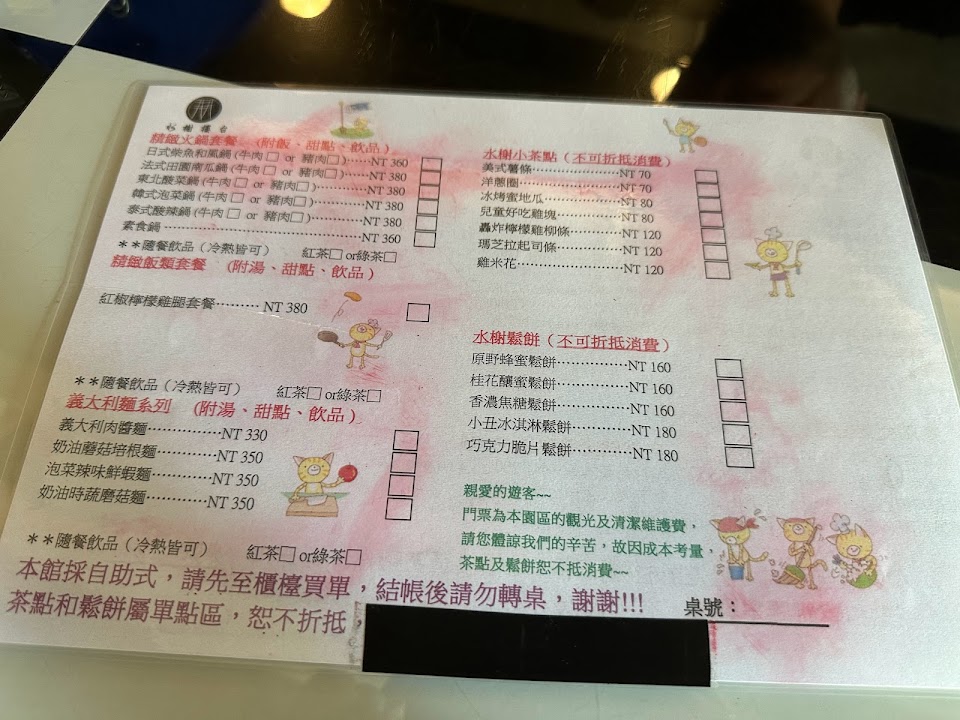 水榭樓台
精緻火鍋套餐 (附飯、甜點、飲品)
日式柴魚和風鍋(牛肉□ or 豬肉□)……NT 360
法式田園南瓜鍋(牛肉□ or 豬肉□)……NT 380
東北酸菜鍋(牛肉□ or 豬肉□)…………NT 380
韓式泡菜鍋(牛肉□ or 豬肉□)…………NT 380
泰式酸辣鍋(牛肉□ or 豬肉□)…………NT 380
素食鍋……………………………………NT 360
**隨餐飲品(冷熱皆可) 紅茶□ or綠茶□
精緻飯類套餐 (附湯、甜點、飲品)
紅椒檸檬雞腿套餐………NT 380
**隨餐飲品(冷熱皆可) 紅茶□ or綠茶□
義大利麵系列 (附湯、甜點、飲品)
義大利肉醬麵……………NT 330
奶油蘑菇培根麵…………NT 350
泡菜辣味鮮蝦麵…………NT 350
奶油時蔬蘑菇麵…………NT 350
**隨餐飲品(冷熱皆可) 紅茶□ or綠茶□
水榭小茶點(不可折抵消費)
美式薯條……………………NT 70
洋蔥圈………………………NT 70
冰烤蜜地瓜…………………NT 80
兒童好吃雞塊………………NT 80
轟炸檸檬雞柳條……………NT 120
瑪芝拉起司條………………NT 120
雞米花………………………NT 120
水榭鬆餅(不可折抵消費)
原野蜂蜜鬆餅……………NT 160
桂花釀蜜鬆餅……………NT 160
香濃焦糖鬆餅……………NT 160
小丑冰淇淋鬆餅…………NT 180
巧克力脆片鬆餅…………NT 180
親愛的遊客~~
門票為本園區的觀光及清潔維護費,
請您體諒我們的辛苦,故因成本考量,
茶點及鬆餅恕不抵消費~~
本館採自助式,請先至櫃檯買單,結帳後請勿轉桌,謝謝!!!
茶點和鬆餅屬單點區,恕不折抵,
桌號: